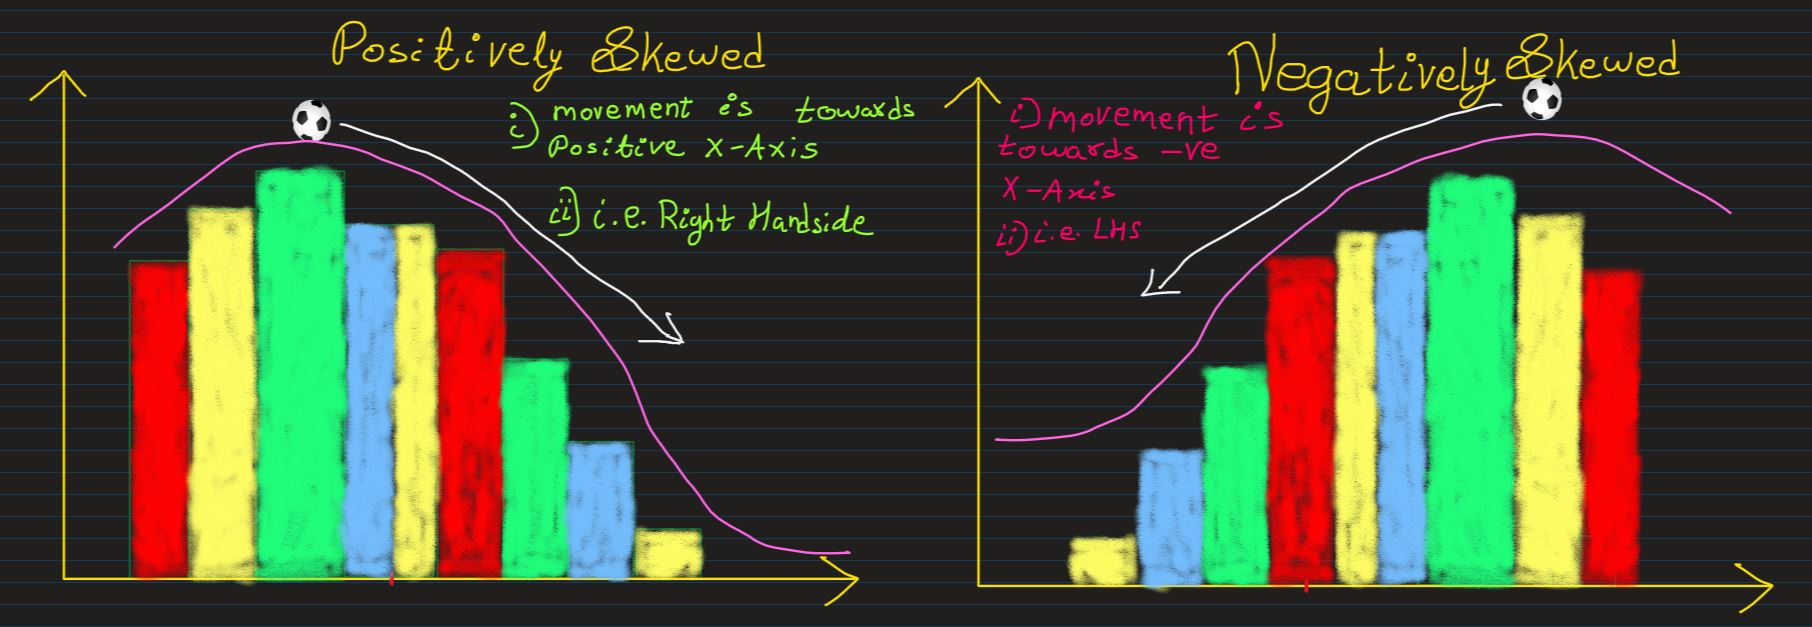 Positively Skewed
i) movement is towards
Positive X-Axis
ii) i.e. Right Handside
Negatively Skewed
i) movement is
towards -ve
X-Axis
ii) i.e. LHS